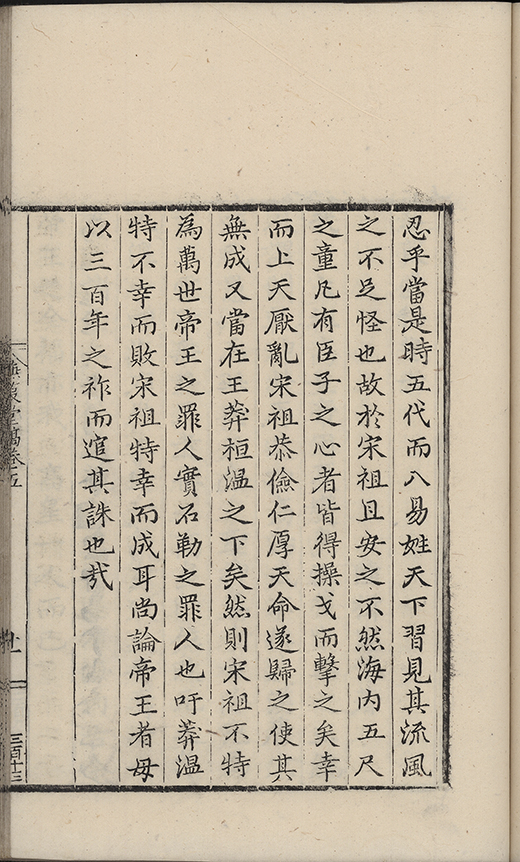 忍乎當是時五代而八易姓天下習見其流風
之不足怪也故於宋祖且安之不然海内五尺
之童凡有臣子之心者皆得操戈而擊之矣幸
而上天厭亂宋祖恭儉仁厚天命遂歸之使其
無成又當在王莽桓温之下矣然則宋祖不特
為萬世帝王之罪人實石勒之罪人也吁莽温
特不幸而敗宋祖特幸而成耳尚論帝王者毋
以三百年之祚而逭其誅也哉
堂稿卷五
三百十三